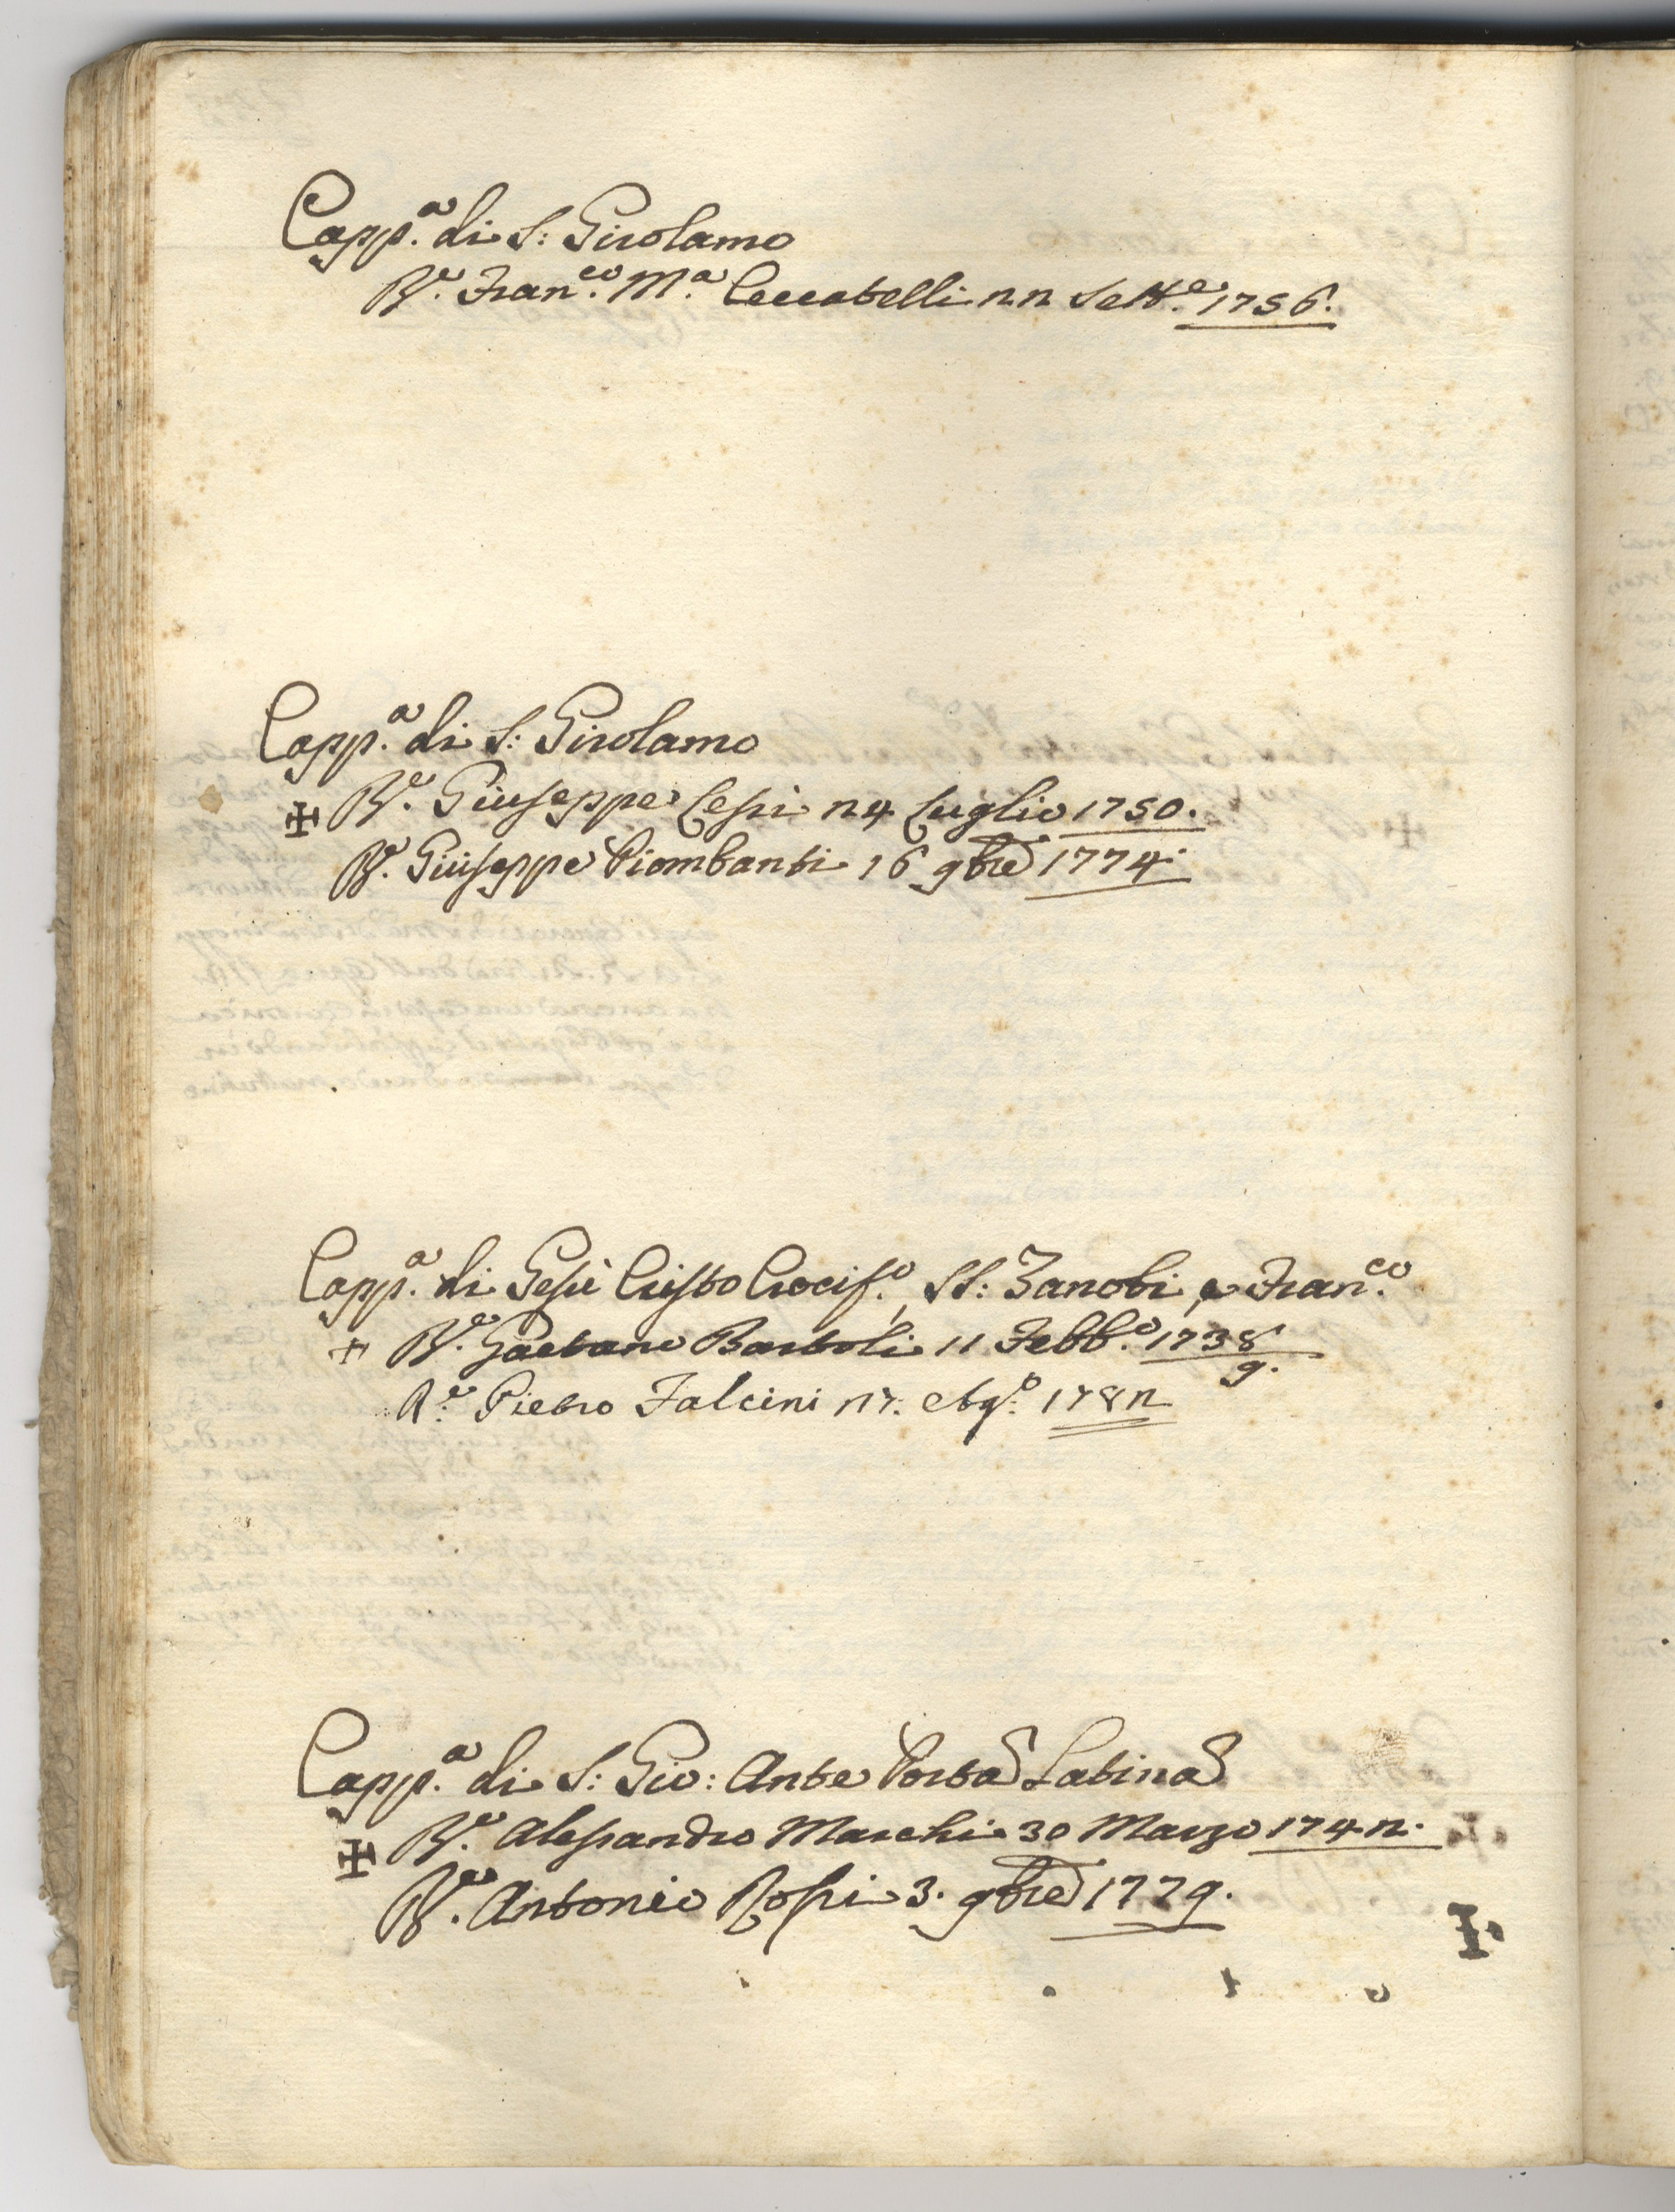 Capp.ª di S: Girolamo
R.e Fran.co M.ª Ceccatelli 22 Sett.e 1756.
Capp.ª di S: Girolamo
✠ R.e Giuseppe Lessi 24 Luglio 1750.
R.e Giuseppe Piombanti 16 9bre 1774.
Capp.ª di Gesù Cristo Crocif.o, SS: Zanobi, e Fran.co
+ R.e Gaetano Bartoli 11 Febb.o 1738/9.
R.e Pietro Falcini 27. Ag.o 1782
Capp.ª di S: Gio: Ante Portã Latinã
✠ R.e Alessandro Marchi 30 Marzo 1742.
R.e Antonio Rossi 3. 9bre 1779.